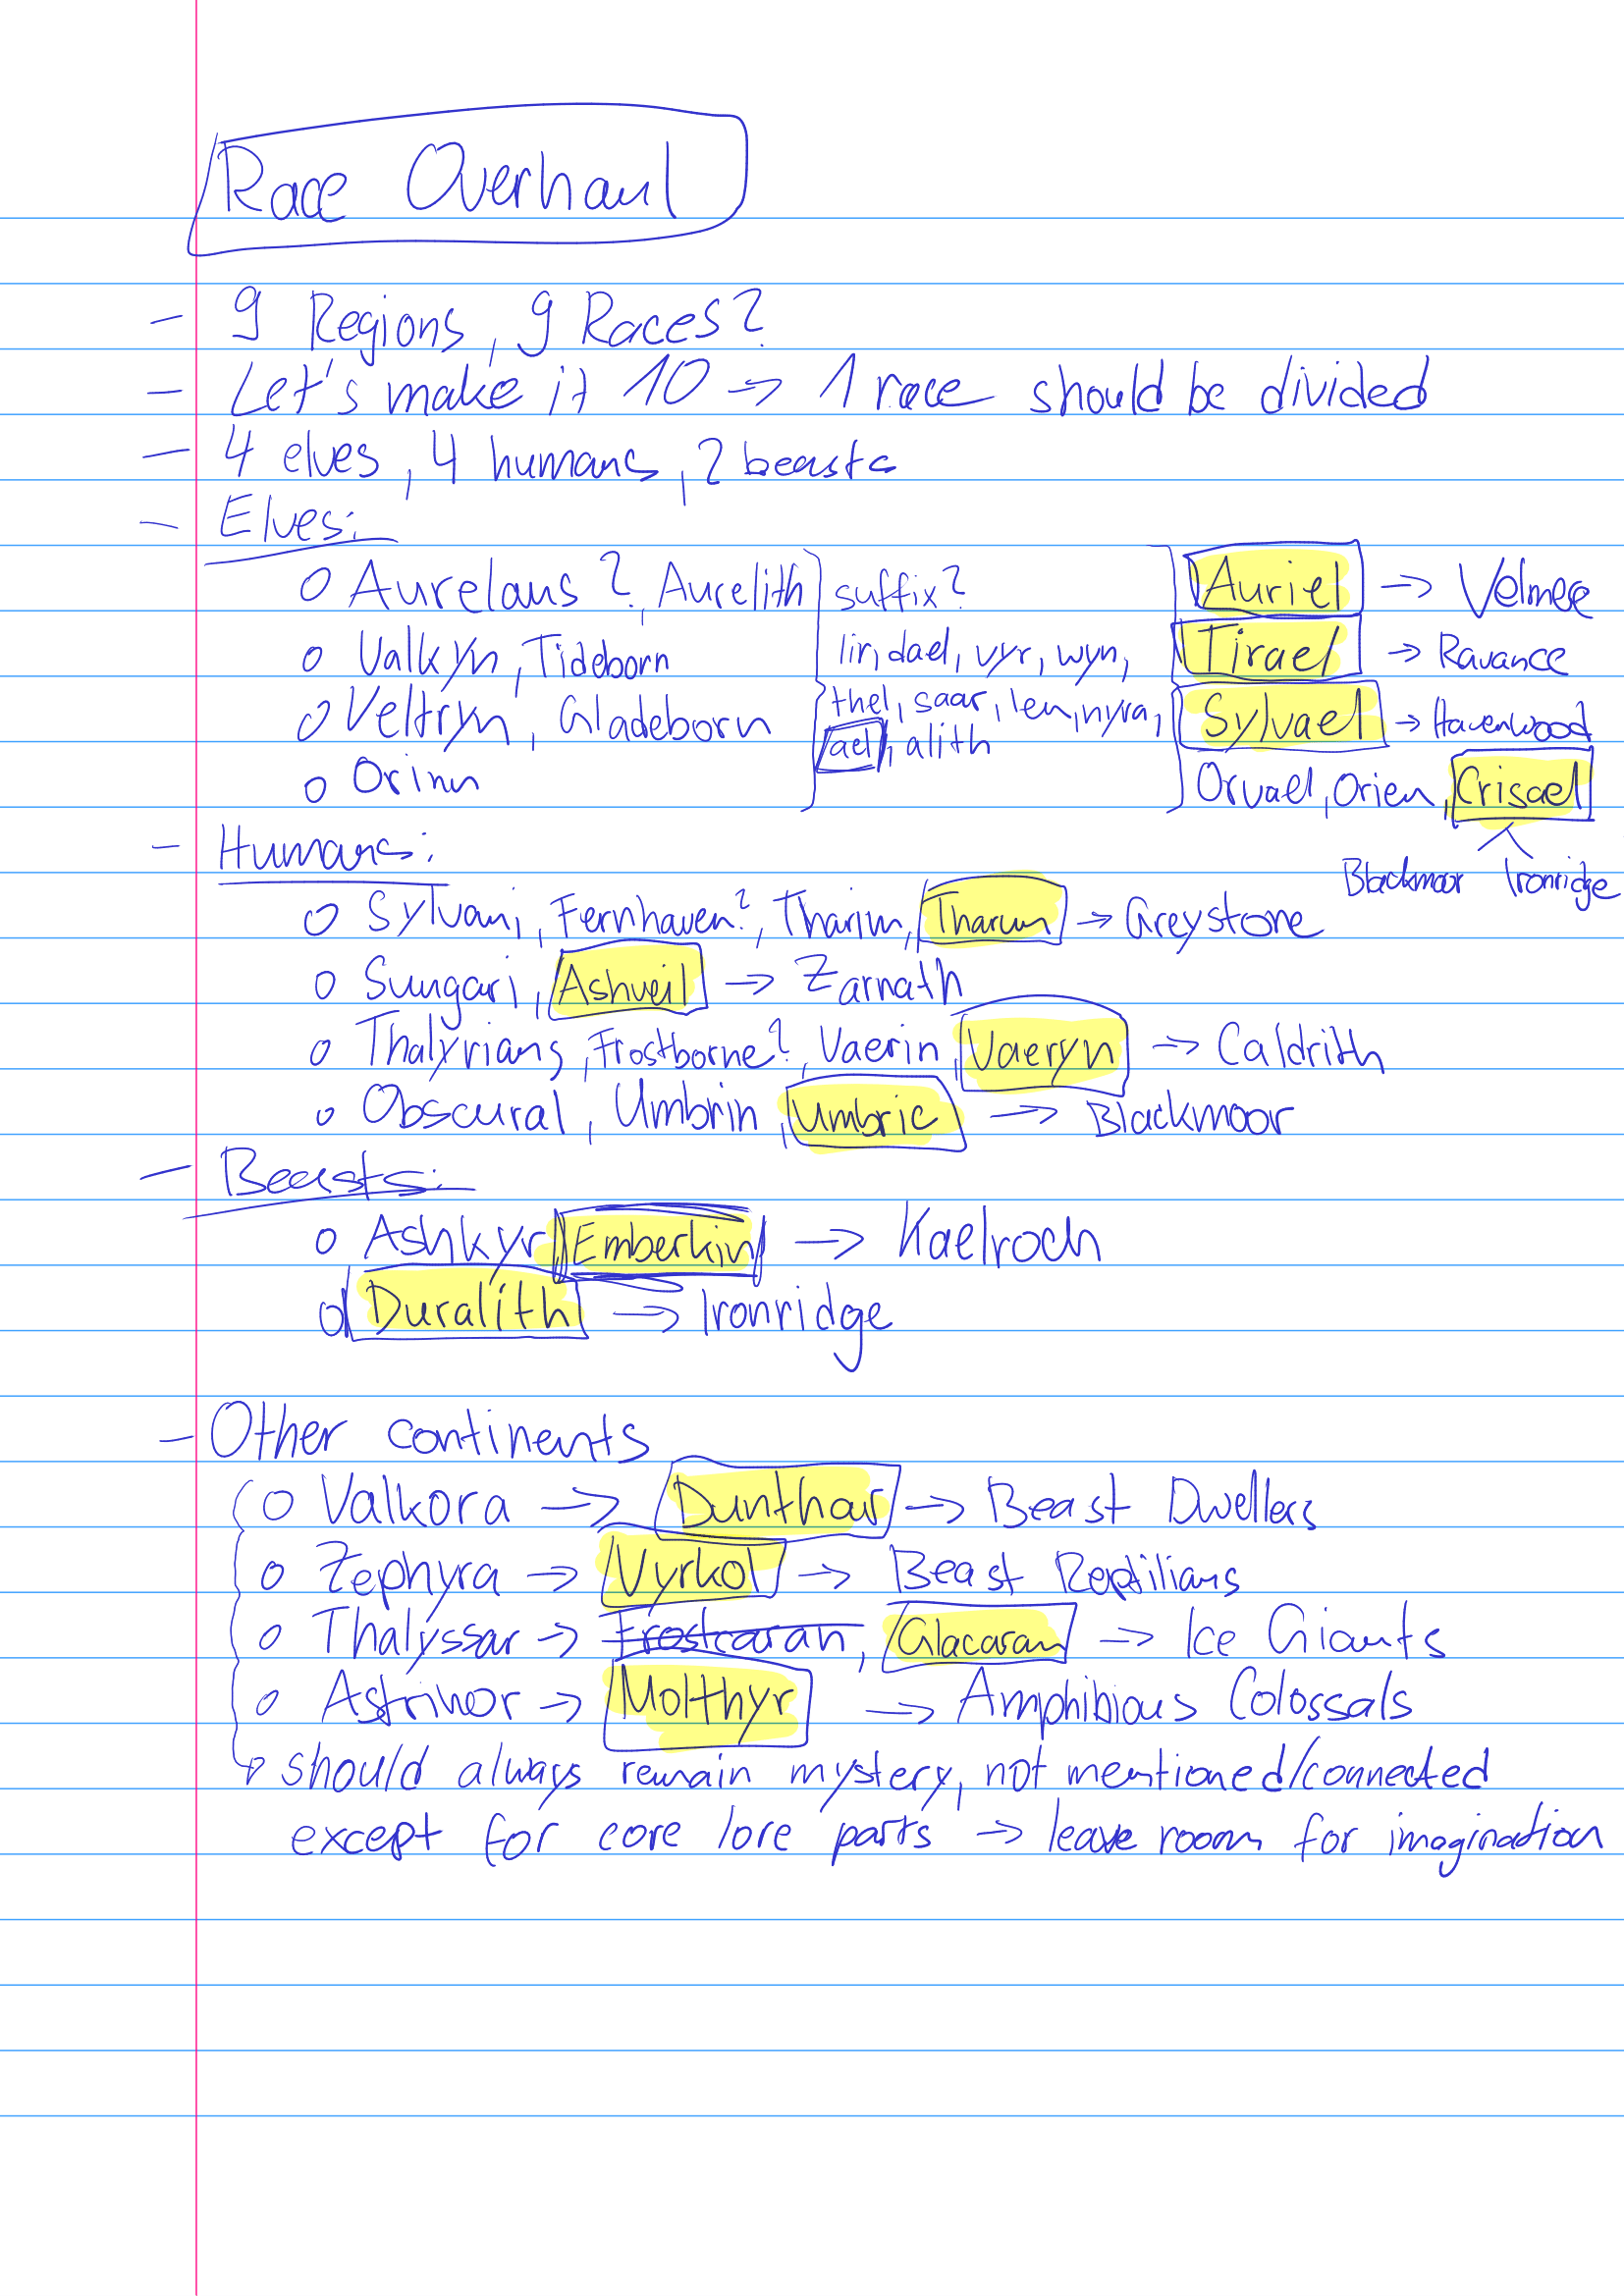 Race Overhaul
- 9 Regions, 9 Races?
- Let's make it 10 → 1 race should be divided
- 4 elves, 4 humans, 2 beasts
- Elves:
o Aurelans?, Aurelith suffix? Auriel → Velmere
o Valkyn, Tideborn lir, dael, vyr, wyn, Tirael → Ravance
o Veltryn, Gladeborn thel, saar, len, nyra, Sylvael → Havenwood
ael, alith
o Orinn Orvael, Orien, Crisael
- Humans: Blackmoor Ironridge
o Sylvani, Fernhaven?, Tharim, Tharun → Greystone
o Sungari, Ashveil → Zarnath
o Thalyrians, Frostborne?, Vaerin, Vaeryn → Caldrith
o Obscural, Umbrin, Umbric → Blackmoor
- Beasts:
o Ashkyr, Emberkin → Kaelroch
o Duralith → Ironridge
- Other continents
o Valkora → Dunthar → Beast Dwellers
o Zephyra → Vyrkol → Beast Reptilians
o Thalyssar → Frostcaran, Glacaran → Ice Giants
o → Molthyr → Amphibious Colossals
↳ should always remain mystery, not mentioned/connected
except for core lore parts → leave room for imagination